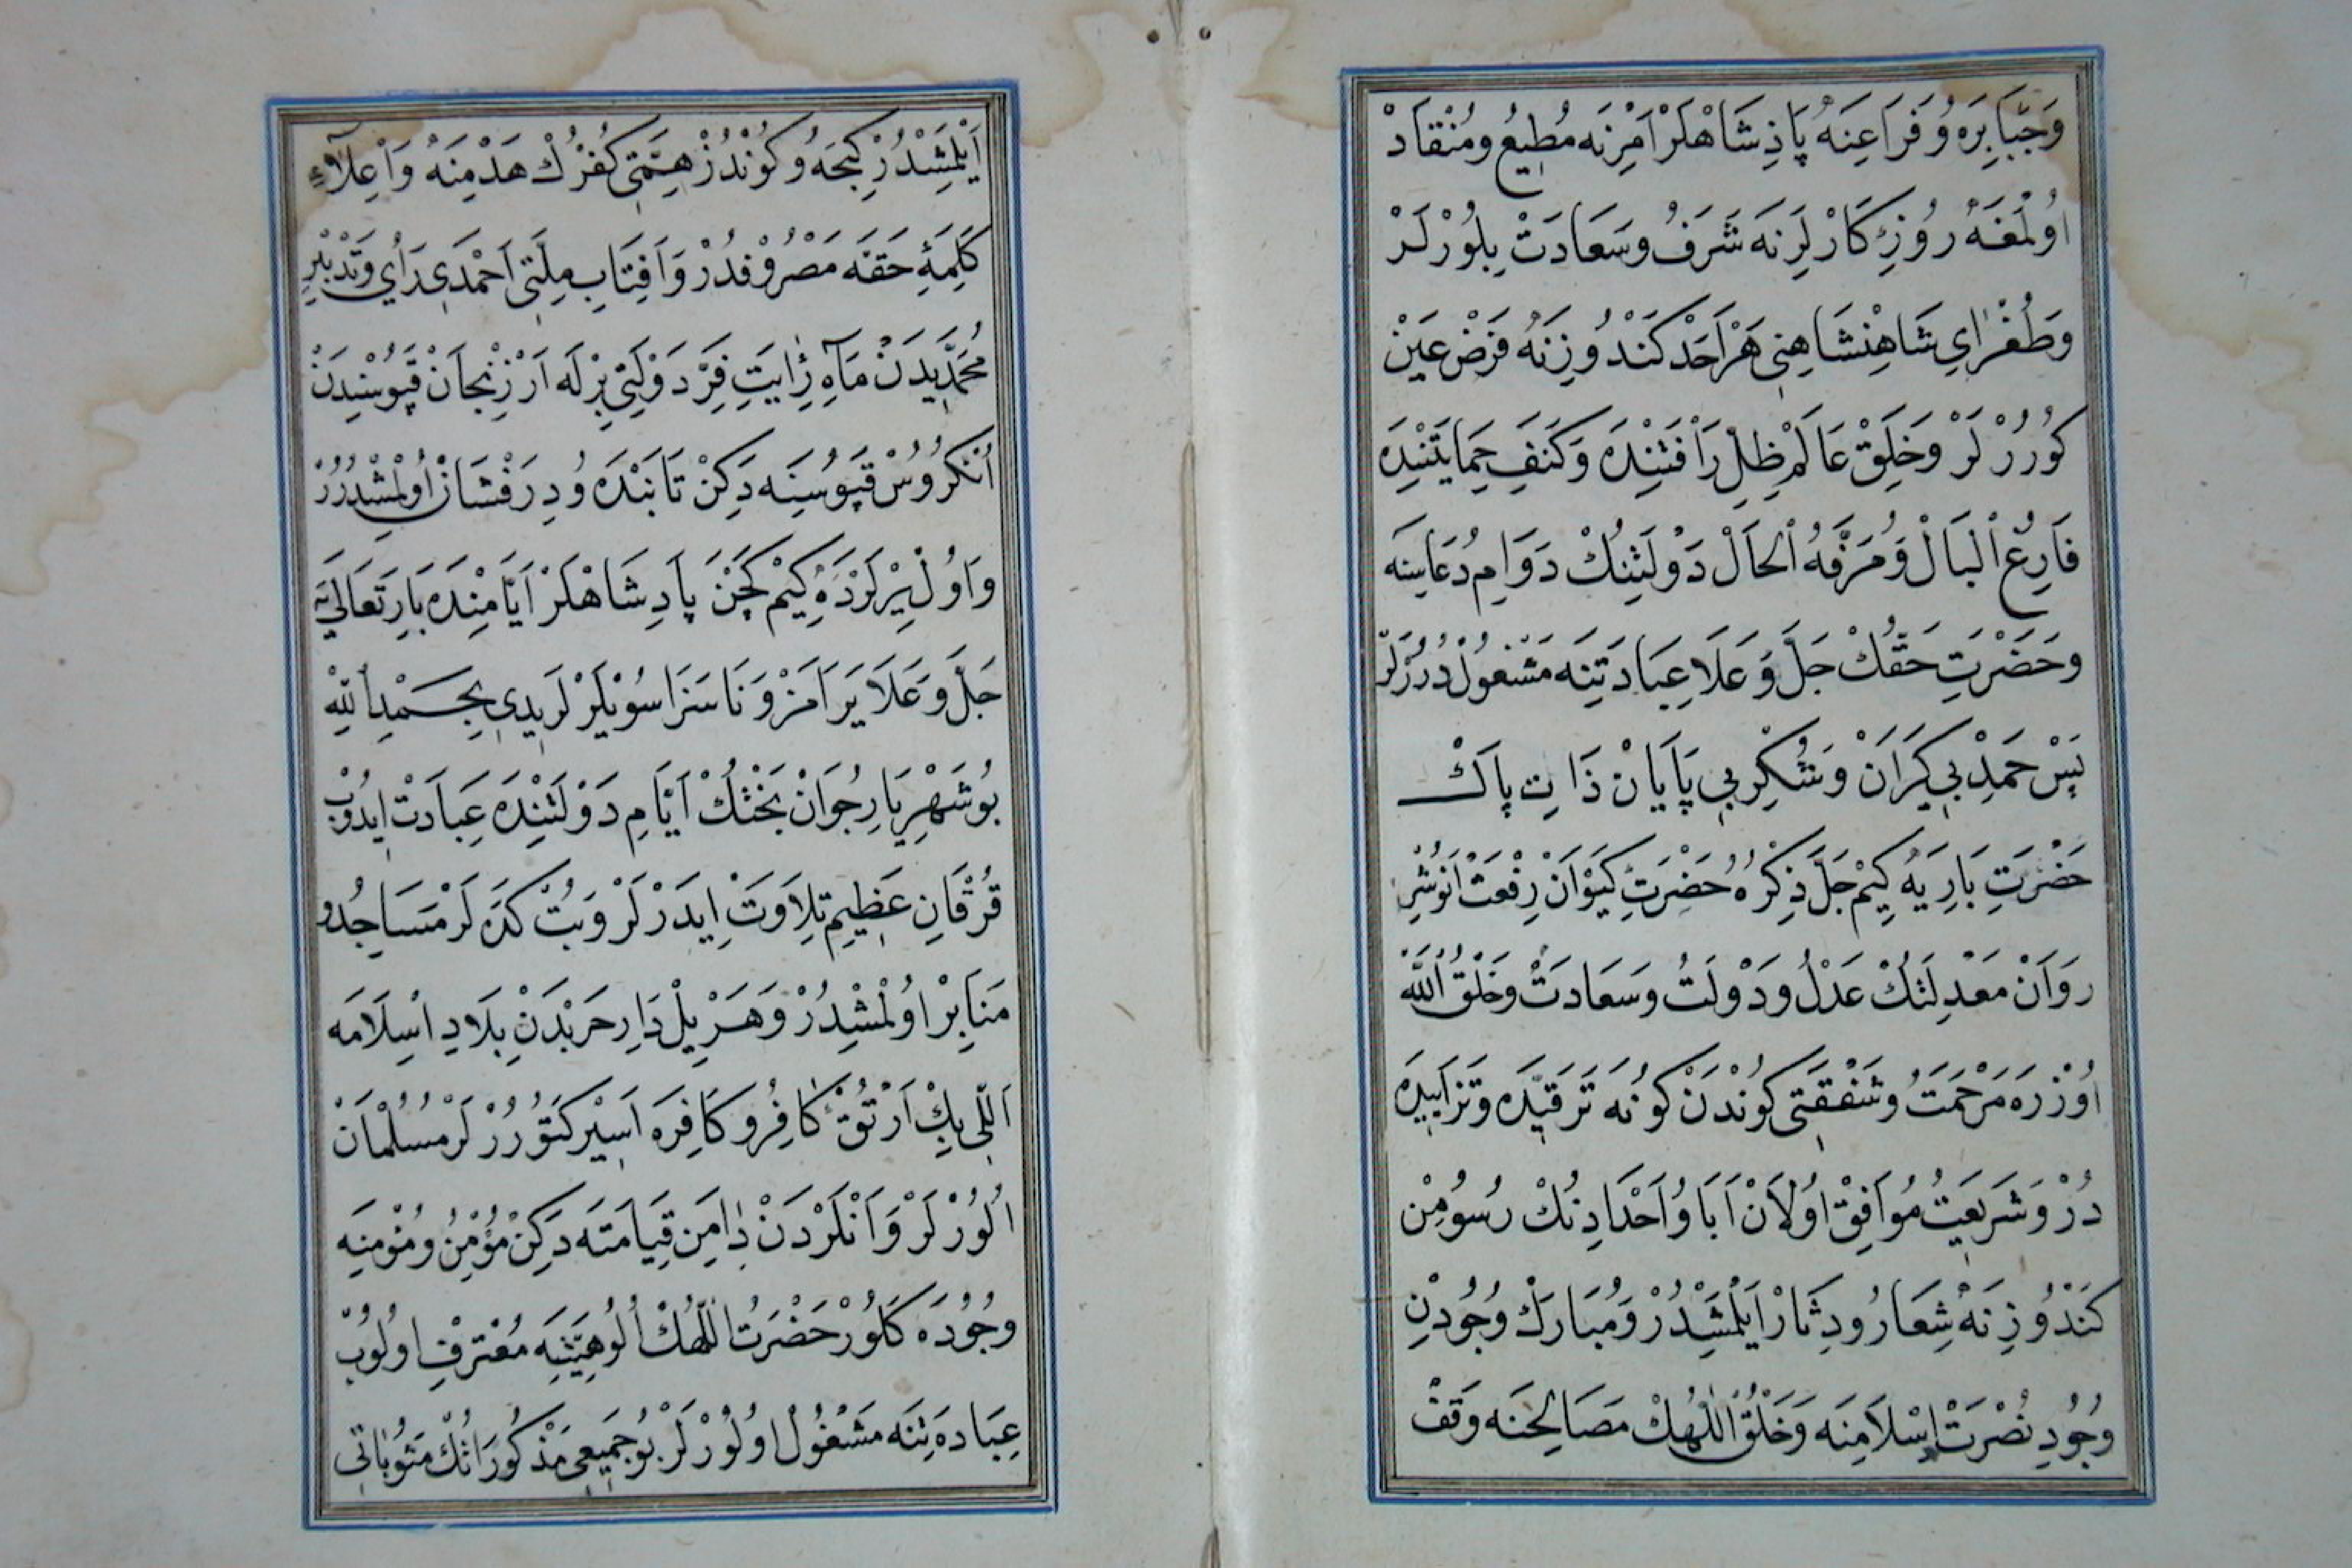 وَجَبَابِرَه وُ فَرَاعِنَهْ پَاذِشَاهْلَرْ اَمْرِنَه مُطِيعُ ومُنْقَادْ
اُولْمَغَهْ رُوُزِكَارْلَرِنَه شَرَفُ وسَعَادَتْ بِلُورْلَرْ
وَطُغْرَايِ شَاهِنْشَاهِنِي هَرْاَحَدْ كَنْدُوزِنَهْ فَرَضْ عَيَنْ
كُورُرْلَرْ وَخَلِقْ عَالَمْ ظِلِّ رَاْفَتِنْدَه وَكَنَفِ حِمَايَتَنْدَه
فَارِغُ اْلبَالْ وَمُرَفَّهُ اْلحَالْ دَوْلَتِنُكْ دَوَامِ دُعَاسِنَه
وحَضْرَتِ حَقُّكْ جَلَّ وَعَلَا عِبَادَتِنَه مَشْغُولْدُرُرْلَرْ
پَسْ حَمْدِ بِي كَرَانْ وَشُكْرِ بِي پَايَانْ ذَاتِ پَاكْ
حَضْرَتِ بَارِيَه كِيمْ جَلَّ ذِكْرُهُ حَضْرَتِ كَيَوْانْ رِفْعَتْ اَنُوشِرِ
رَوَانْ مَعْدِلَتُكْ عَدْلُ ودَوْلَتُ وسَعَادَتْ وخَلْقُ اللّٰه
اُوزْرَه مَرْحَمَتُ وشَفْقَتِي كُونْدَنْ كُونَه تَرَقِّيدَه وتَزَايِيدَه
دُرْ وَشَرِيعَتْ مُوَافِقْ اُولَانْ اَبَا وُاَحْدَادِنُكْ رُسُومِنْ
كَنْدُوزِنَهْ شِعَارُ ودِثَارْ اَيْلَمِشْدُرْ وَمُبَارَكْ وُجُودِنِ
وُجُودِ نُصْرَتْ اِسْلَامِنَه وَخَلْقُ اللّٰهُكْ مَصَالِحِنَه وَقْفْ
اَيْلَمِشْدُرْ كِيجَه وُكُونْدُزْ هِمَّتِي كُفْرُكْ هَدْمِنَهْ وَاْعِلَآءِ
كَلِمَهِٔ حَقَّه مَصْرُوفْدُرْ وَاَفِتَابِ مِلَّتِي اَحْمَدِي رَاْيِ وتَدْبِيرِ
مُحَمَّدِيدَنْ مَاهِ رَايَتِ فِرَّ دَوْلَتِي بِرْلَه اَرْزِنْجَانْ قَپُوسِنْدَنْ
اُنْكُرُوُسْ قَپُوسِنَه دَكِنْ تَابَنْدَه وُدِرَفْشَانْ اُولْمُشْدُرُرْ
وَاوُلْ يِيرْلَرْدَه كِيمْ كَچَنْ پَادِشَاهْلَرْ اَيَّامِنْدَه بَارِتَعَالَيَه
جَلَّ وَعَلَا يَرَامَزْ وَنَاسَزَا سُويْلَرْلَرِيدِي بِحَمْدِ اللّٰهِ
بُوشَهْرِيَارِ جُوَانْ بَخْتُكْ اَيَّامِ دَوْلَتِنْدَه عِبَادَتْ اِيدُوبْ
قُرْقَانِ عَظِيمِ تِلَاوَتْ اِيدَرْلَرْ وَبُتْ كَدَه لَرْ مَسَاجِدُ و
مَنَابِرْ اوُلْمُشْدُرْ وَهَرْ يِلْ دَارِ حَرْبْدَنْ بِلَادِ اِسْلَامَه
اَللِّي بِكْ اَرْتُقْ كَافِرُ وكَافِرَه اَسِيْر كَتُورُرْلَرْ مُسُلْمَانْ
اُلُورْلَرْ وَاَنْلَرْدَنْ دَامَنِ قِيَامَتَه دَكِنْ مُؤْمِنُ ومُؤْمِنَه
وُجُودَه كَلُورْ حَضْرَتُ اللّٰهُكْ اُلُوهِيَّتِنَه مُعْتَرِفْ اوُلُوبْ
عِبَادَه تِنَه مَشْغُولْ اوُلُورْلَرْ بُوجَمِيعِي مَذْكُورَاتُكْ مَثُوبَاتِي